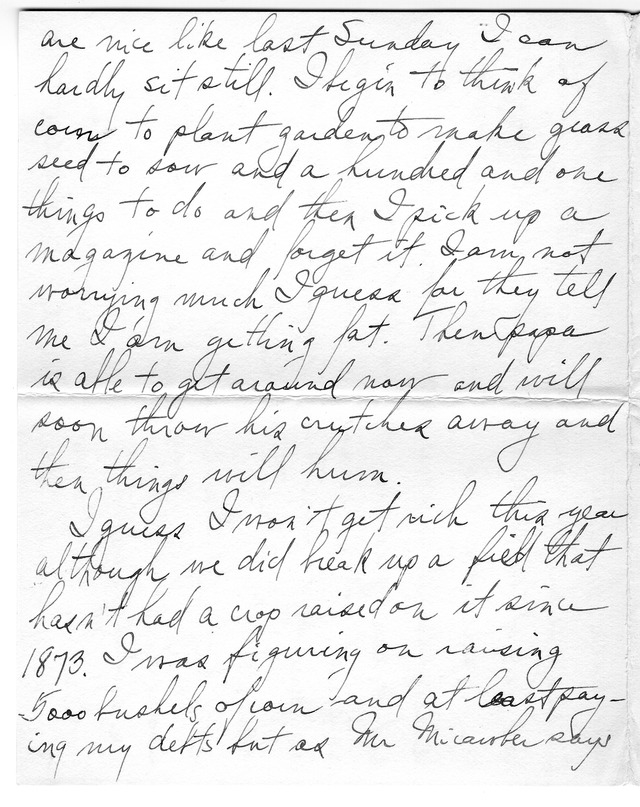 are nice like last Sunday I can
hardly sit still. I begin to think of
corn to plant garden to make grass
seed to sow and a hundred and one
things to do and then I pick up a
magazine and forget it. I am not
worrying much I guess for they tell
me I am getting fat. Then papa
is able to get around now and will
soon throw his crutches away and
then things will hum.
I guess I won't get rich this year
although we did break up a field that
hasn't had a crop raised on it since
1873. I was figuring on raising
5000 bushels of corn and at least pay-
ing my debts but as Mr Micawber says